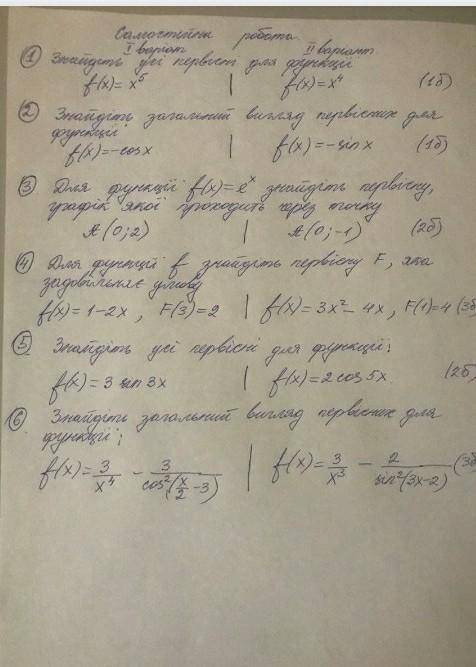 Самостійна робота.
I варіант II варіант
① Знайдіть усі первісні для функції
f(x)=x⁵ | f(x)=x⁴ (1б)
② Знайдіть загальний вигляд первісних для
функції
f(x)=-cosx | f(x)=-sinx (1б)
③ Для функції f(x)=eˣ знайдіть первісну,
графік якої проходить через точку
A(0;2) | A(0;-1) (2б)
④ Для функції f знайдіть первісну F, яка
задовільняє умову
f(x)=1-2x, F(3)=2 | f(x)=3x²-4x, F(1)=4 (3б
⑤ Знайдіть усі первісні для функції:
f(x)=3 sin3x | f(x)=2cos5x. (2б
⑥ Знайдіть загальний вигляд первісних для
функції;
f(x)=3/x⁴ - 3/cos²(x/2-3) | f(x)=3/x³ - 2/sin²(3x-2) (3б